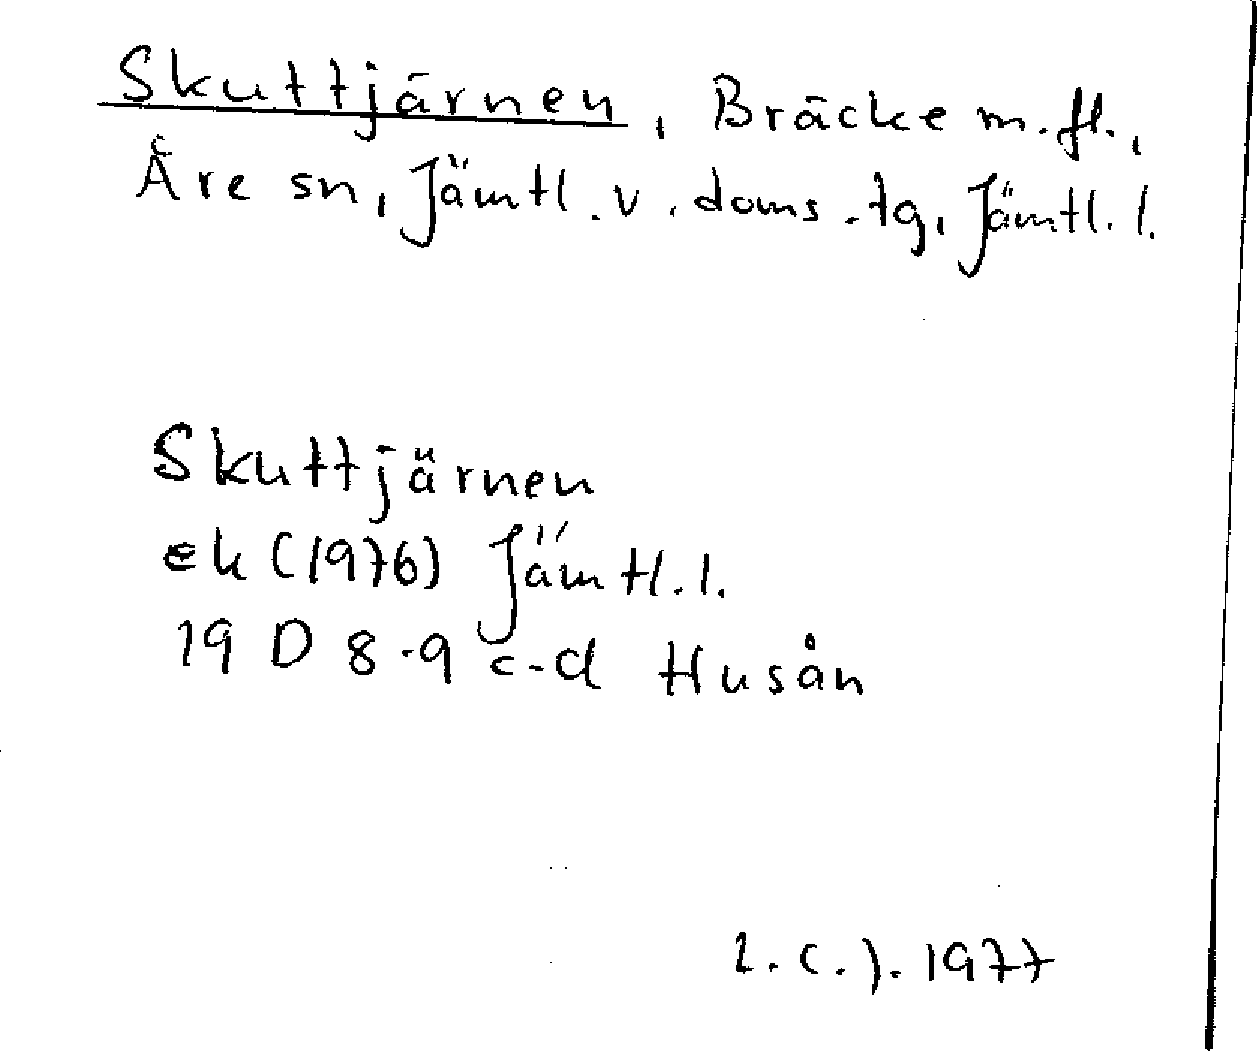 Skuttjärnen, Bräcke m.fl.,
Åre sn, Jämtl. v. doms.tg, Jämtl. l.
Skuttjärnen
ek (1976) Jämtl. l.
19 D 8-9 c-d Husån
1977